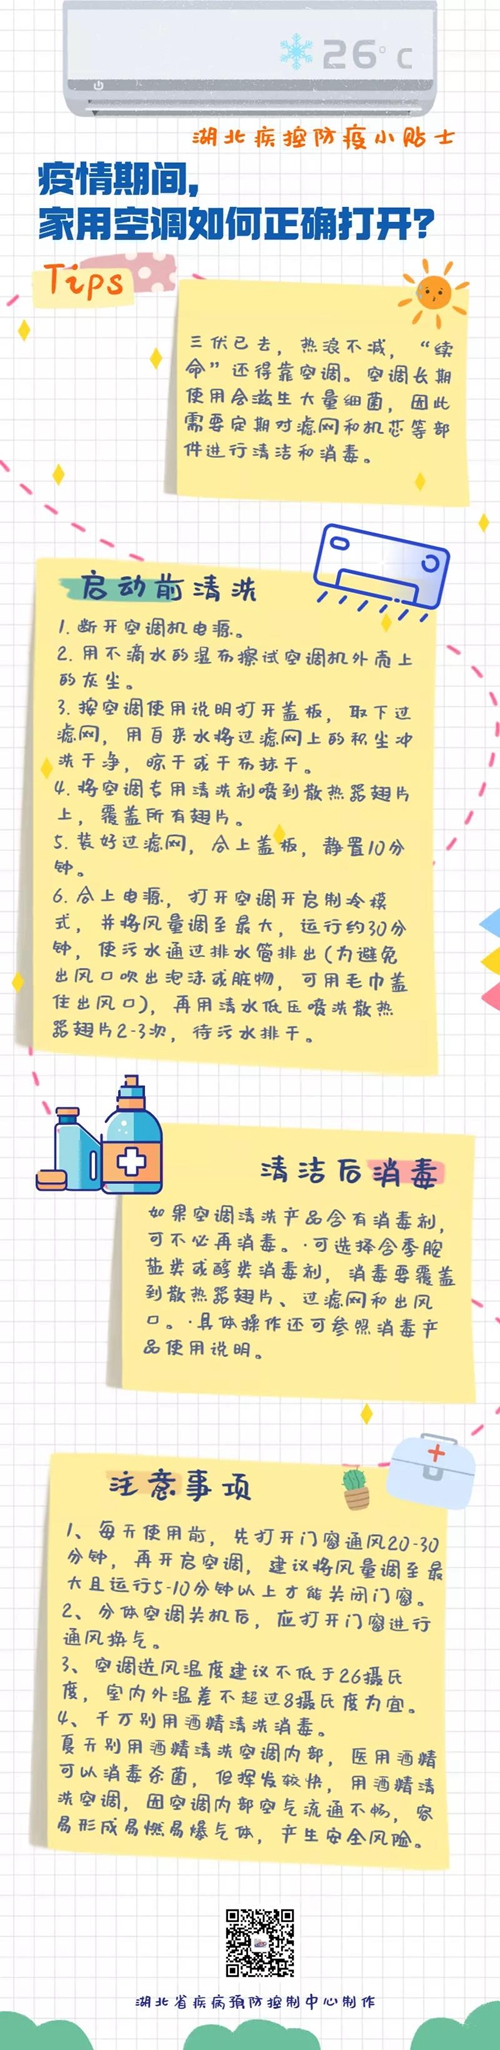 26°C
湖北疾控防疫小贴士
疫情期间，
家用空调如何正确打开？
Tips
三伏已去，热浪不减，“续
命”还得靠空调。空调长期
使用会滋生大量细菌，因此
需要定期对滤网和机芯等部
件进行清洁和消毒。
启动前清洗
1. 断开空调机电源。
2. 用不滴水的湿布擦试空调机外壳上
的灰尘。
3. 按空调使用说明打开盖板，取下过
滤网，用自来水将过滤网上的积尘冲
洗干净，晾干或干布抹干。
4. 将空调专用清洗剂喷到散热器翅片
上，覆盖所有翅片。
5. 装好过滤网，合上盖板，静置10分
钟。
6. 合上电源，打开空调开启制冷模
式，并将风量调至最大，运行约30分
钟，使污水通过排水管排出(为避免
出风口吹出泡沫或脏物，可用毛巾盖
住出风口)，再用清水低压喷洗散热
器翅片2-3次，待污水排干。
清洁后消毒
如果空调清洗产品含有消毒剂，
可不必再消毒。·可选择含季胺
盐类或醇类消毒剂，消毒要覆盖
到散热器翅片、过滤网和出风
口。·具体操作还可参照消毒产
品使用说明。
注意事项
1、每天使用前，先打开门窗通风20-30
分钟，再开启空调，建议将风量调至最
大且运行5-10分钟以上才能关闭门窗。
2、分体空调关机后，应打开门窗进行
通风换气。
3、空调送风温度建议不低于26摄氏
度，室内外温差不超过8摄氏度为宜。
4、千万别用酒精清洗消毒。
夏天别用酒精清洗空调内部，医用酒精
可以消毒杀菌，但挥发较快，用酒精清
洗空调，因空调内部空气流通不畅，容
易形成易燃易爆气体，产生安全风险。
湖北省疾病预防控制中心制作